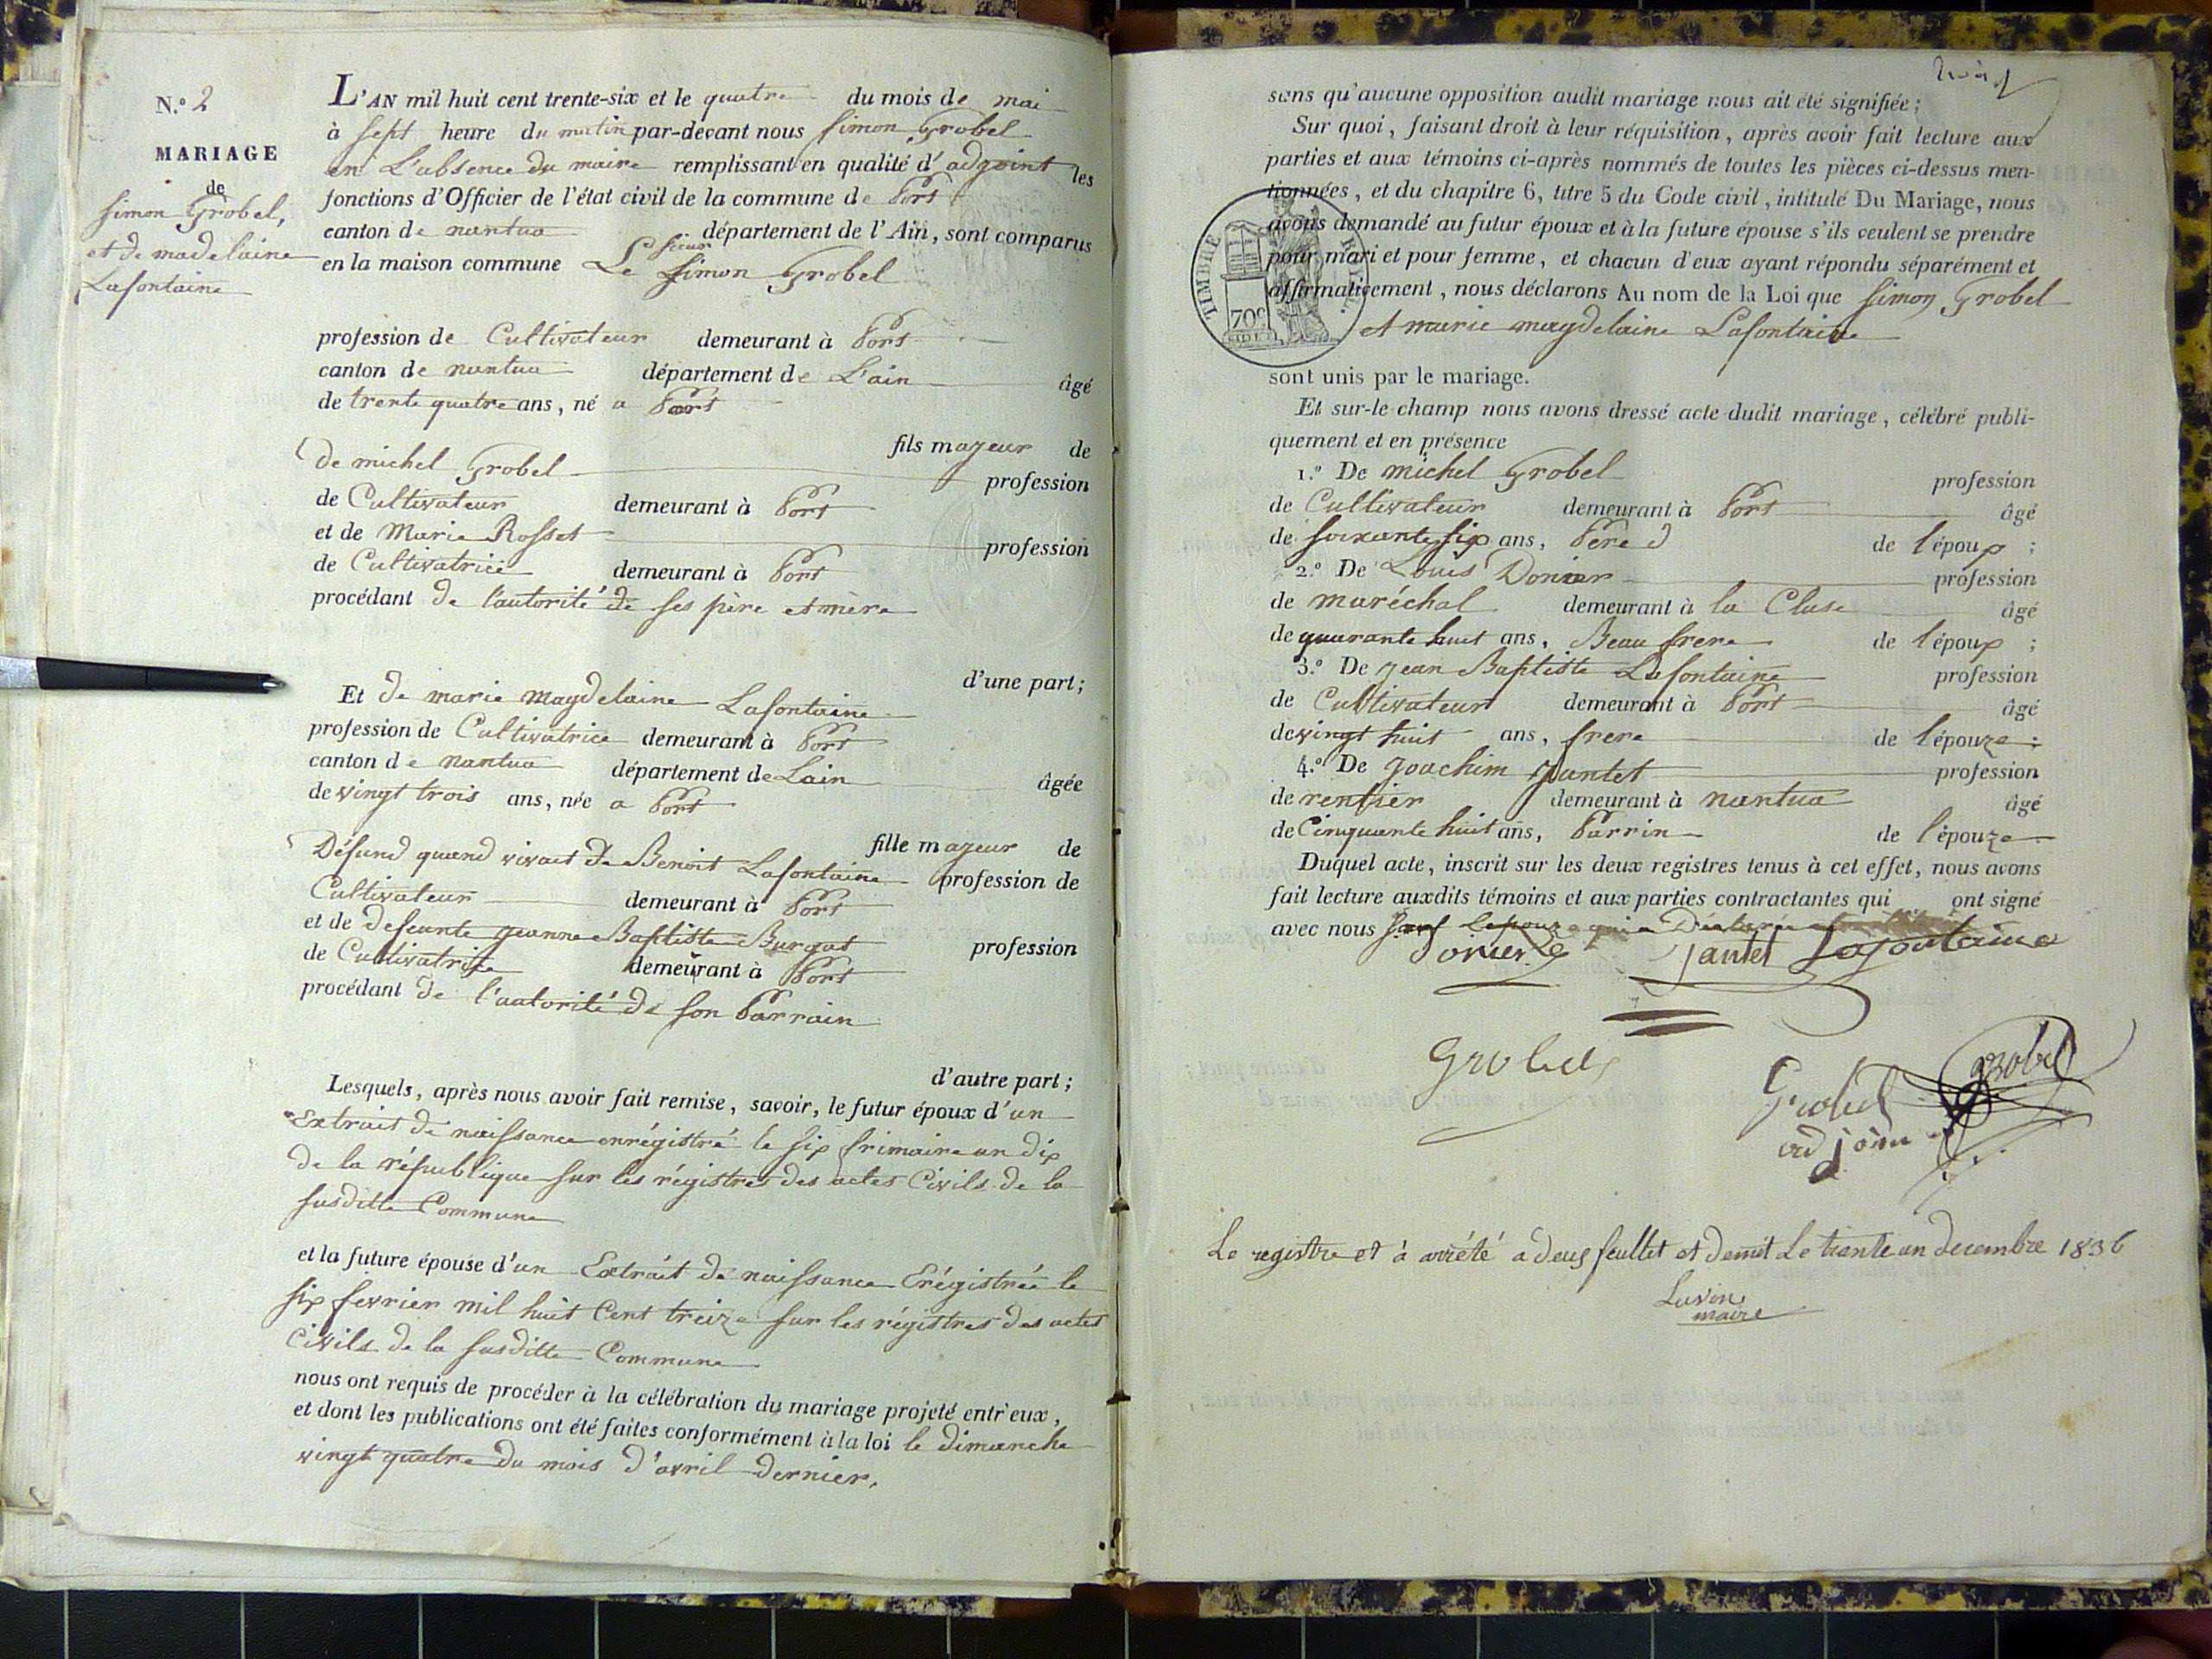 N.º 2
MARIAGE
de
Simon Grobel,
et de madelaine
Lafontaine
L'AN mil huit cent trente-six et le quatre du mois de mai
à sept heure du matin par-devant nous Simon Grobel
en L'absence du maire remplissant en qualité d'adjoint les
fonctions d'Officier de l'état civil de la commune de Port
canton de nantua département de l'Ain, sont comparus
en la maison commune Le sieur Simon Grobel
profession de Cultivateur demeurant à Port
canton de nantua département de L'ain âgé
de trente quatre ans, né a Port
fils majeur de
de michel Grobel profession
de Cultivateur demeurant à Port
et de Marie Rosset profession
de Cultivatrice demeurant à Port
procédant de l'autorité de ses père et mère
d'une part;
Et de marie magdelaine Lafontaine
profession de Cultivatrice demeurant à Port
canton de nantua département de Lain âgée
de vingt trois ans, née a Port
fille majeur de
Défund quand vivait de Benoit Lafontaine profession de
Cultivateur demeurant à Port
et de defeunte jeanne Baptiste Burgat profession
de Cultivatrice demeurant à Port
procédant de l'autorité de son Parrain
d'autre part;
Lesquels, après nous avoir fait remise, savoir, le futur époux d'un
Extrait de naissance enrégistré le six frimaire an dix
de la république sur les régistres des actes Civils de la
susditte Commune
et la future épouse d'un Extrait de naissance Erégistrée le
six fevrier mil huit Cent treize sur les régistres des actes
Civils de la susditte Commune
nous ont requis de procéder à la célébration du mariage projeté entr'eux,
et dont les publications ont été faites conformément à la loi le dimanche
vingt quatre du mois d'avril dernier,
trois
sans qu'aucune opposition audit mariage nous ait été signifiée;
Sur quoi, faisant droit à leur réquisition, après avoir fait lecture aux
parties et aux témoins ci-après nommés de toutes les pièces ci-dessus men-
tionnées, et du chapitre 6, titre 5 du Code civil, intitulé Du Mariage, nous
avons demandé au futur époux et à la future épouse s'ils veulent se prendre
pour mari et pour femme, et chacun d'eux ayant répondu séparément et
affirmativement, nous déclarons Au nom de la Loi que Simon Grobel
et marie magdelaine Lafontaine
TIMBRE ROYAL.
70c
sont unis par le mariage.
Et sur-le-champ nous avons dressé acte dudit mariage, célébré publi-
quement et en présence
1.º De michel Grobel profession
de Cultivateur demeurant à Port âgé
de soixante six ans, Père d de l'époux ;
2.º De Louis Dorier profession
de maréchal demeurant à la Cluse âgé
de quarante huit ans, Beau frere de l'époux ;
3.º De jean Baptiste Lafontaine profession
de Cultivateur demeurant à Port âgé
de vingt huit ans, frere de l'épouze ;
4.º De Joachim Jantet profession
de rentier demeurant à nantua âgé
de Cinquante huit ans, Parrin de l'épouze
Duquel acte, inscrit sur les deux registres tenus à cet effet, nous avons
fait lecture auxdits témoins et aux parties contractantes qui ont signé
avec nous sauf Lepouze qui a Déclarée
Dorier Jantet Lafontaine
Grobel
Grobel Grobel
adjoin
Le registre et à arrété a deux feuillet et demit Le trente un decembre 1836
Lavin
maire